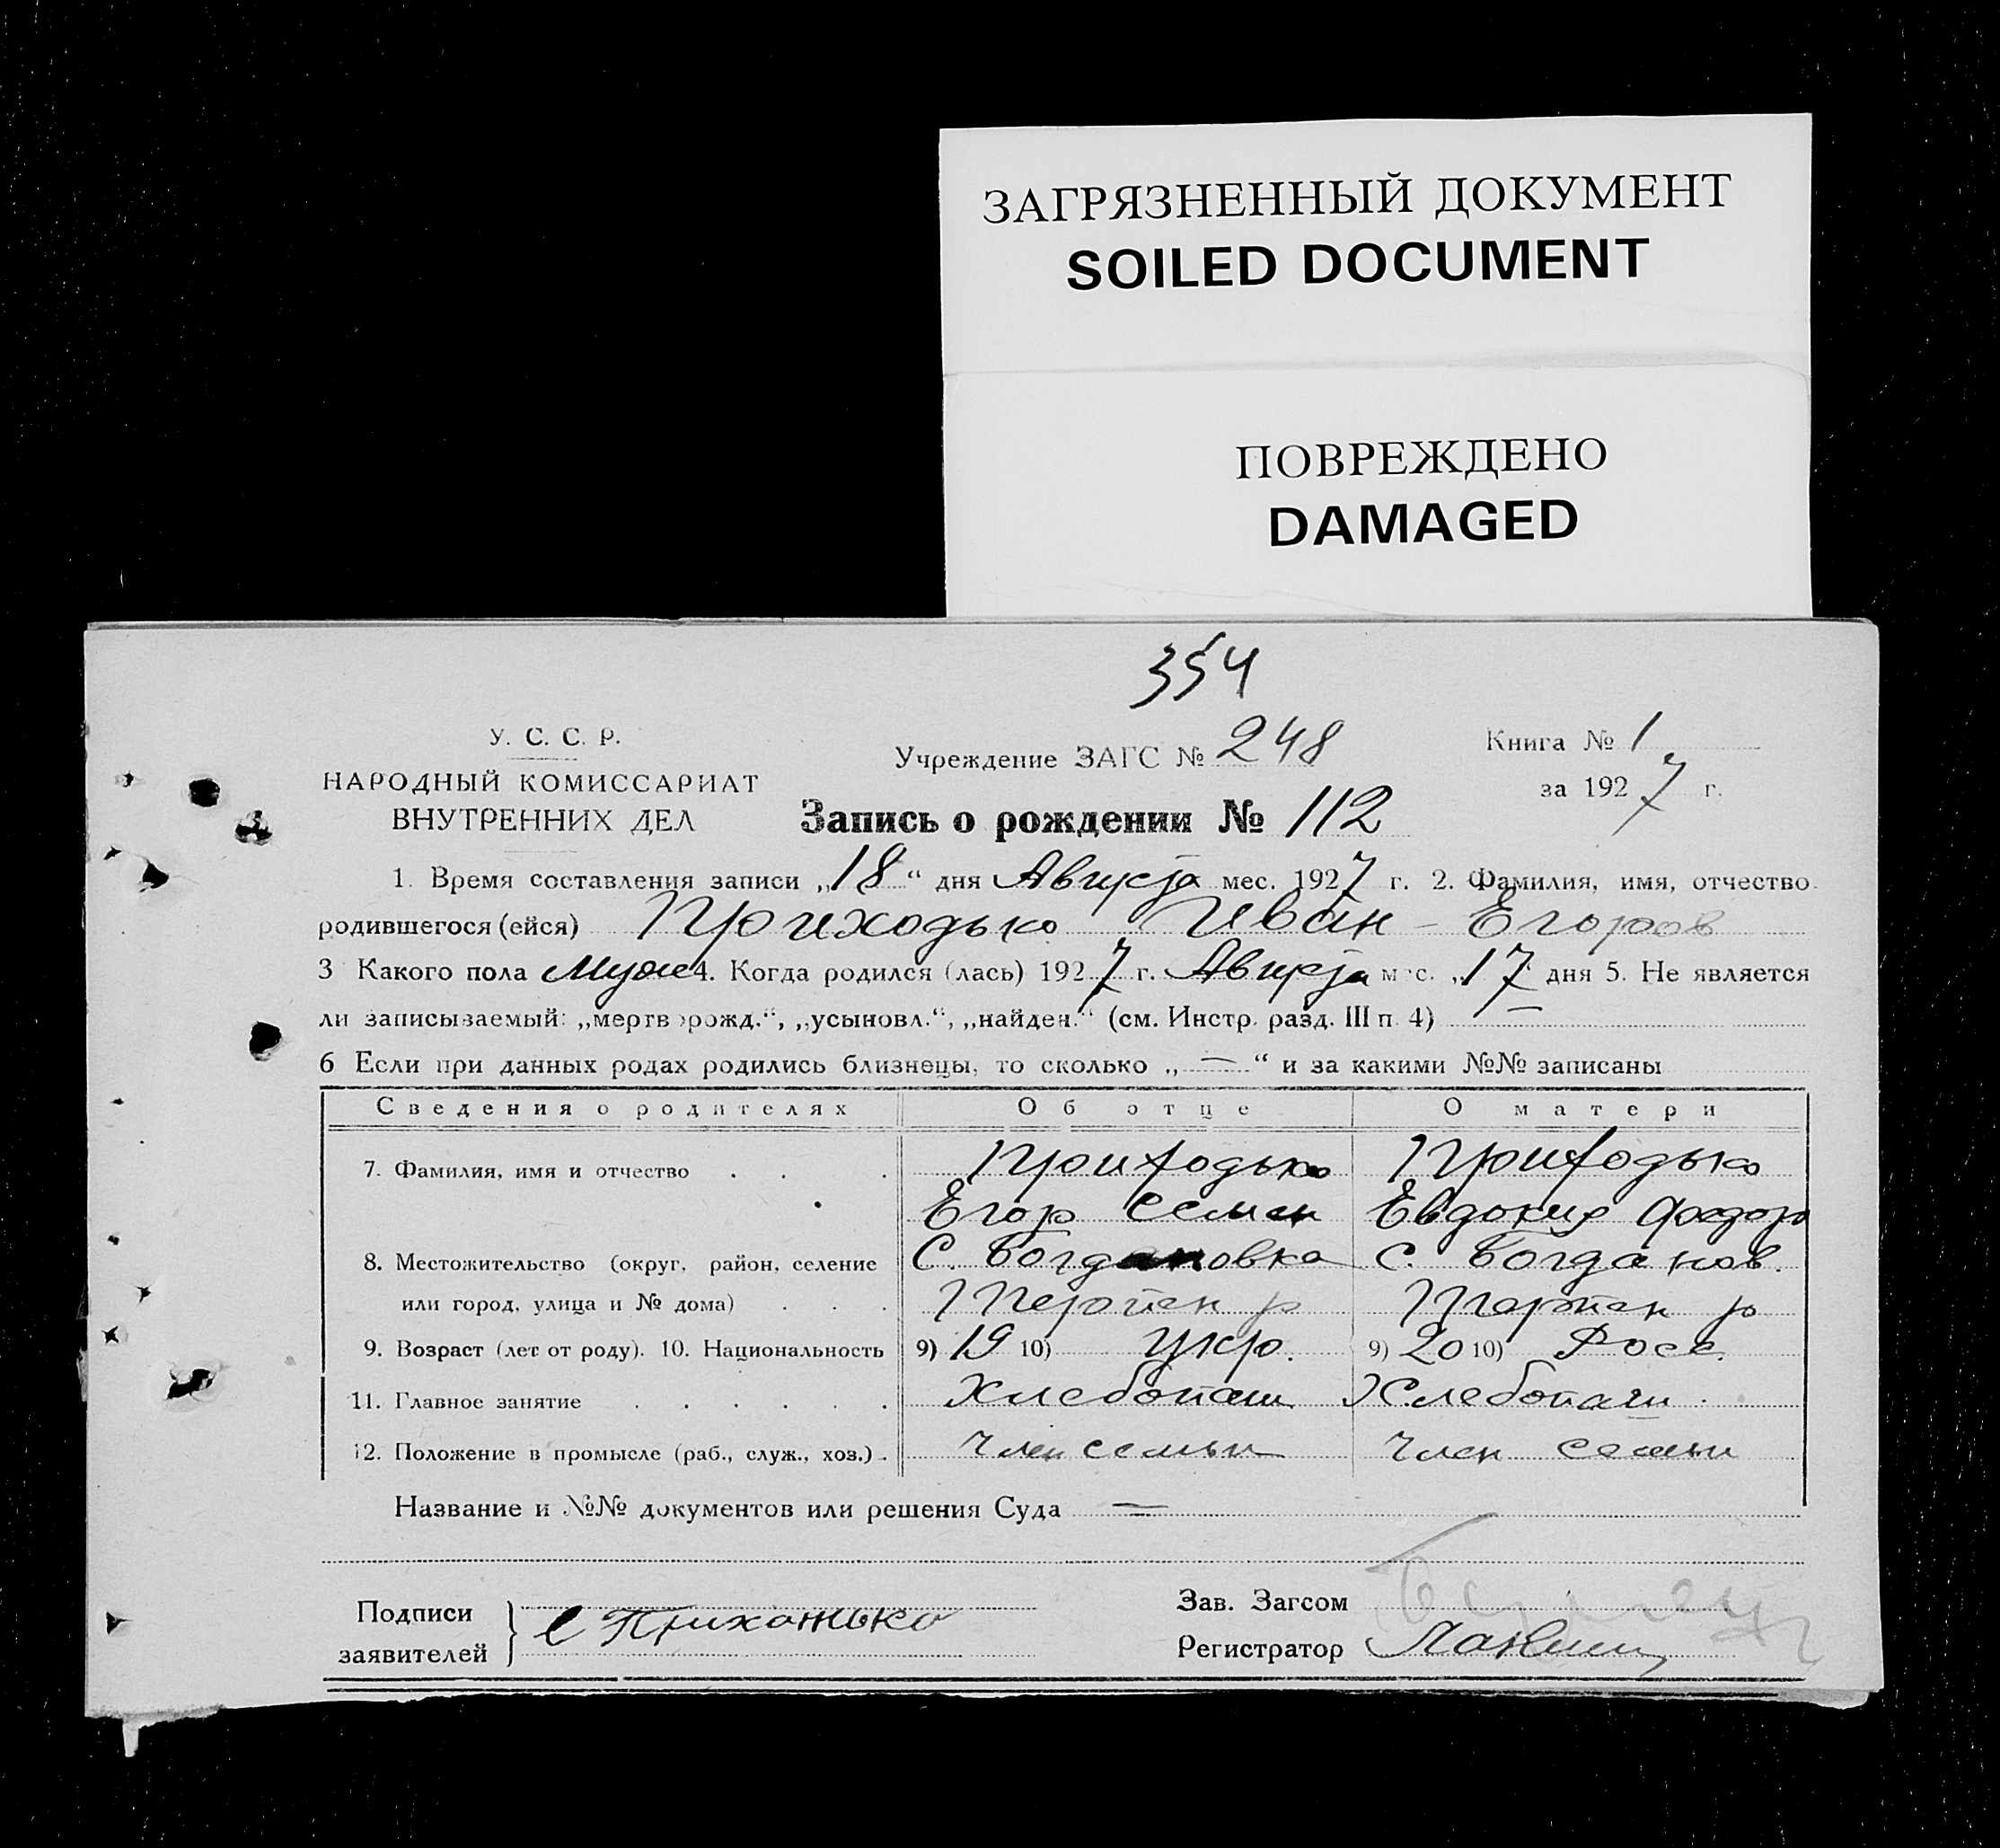 ЗАГРЯЗНЕННЫЙ ДОКУМЕНТ
SOILED DOCUMENT
ПОВРЕЖДЕНО
DAMAGED
354
У. С. С. Р.
НАРОДНЫЙ КОМИССАРИАТ
ВНУТРЕННИХ ДЕЛ
Учреждение ЗАГС № 248
Книга № 1
за 1927 г.
Запись о рождении № 112
1. Время составления записи „18“ дня Августа мес. 1927 г. 2. Фамилия, имя, отчество
родившегося (ейся) Приходько Иван Егоров
3 Какого пола Муж 4. Когда родился (лась) 1927 г. Августа мес. „17 дня 5. Не является
ли записываемый: „мертворожд.“, „усыновл.“, „найден.“ (см. Инстр. разд. III п. 4) —
6 Если при данных родах родились близнецы, то сколько „—“ и за какими №№ записаны
Сведения о родителях Об отце О матери
7. Фамилия, имя и отчество . . . Приходько Приходько
Егор Семен Евдокия Федор
8. Местожительство (округ, район, селение С. Богдановка С. Богданов.
или город, улица и № дома) . . . Терпен р Терпен р
9. Возраст (лет от роду). 10. Национальность 9) 19 10) Укр. 9) 20 10) Росс.
11. Главное занятие . . . . . . Хлебопаш Хлебопаш.
12. Положение в промысле (раб., служ., хоз.) . Член семьи Член семьи
Название и №№ документов или решения Суда —
Подписи
заявителей } С Прихожько
Зав. Загсом
Регистратор